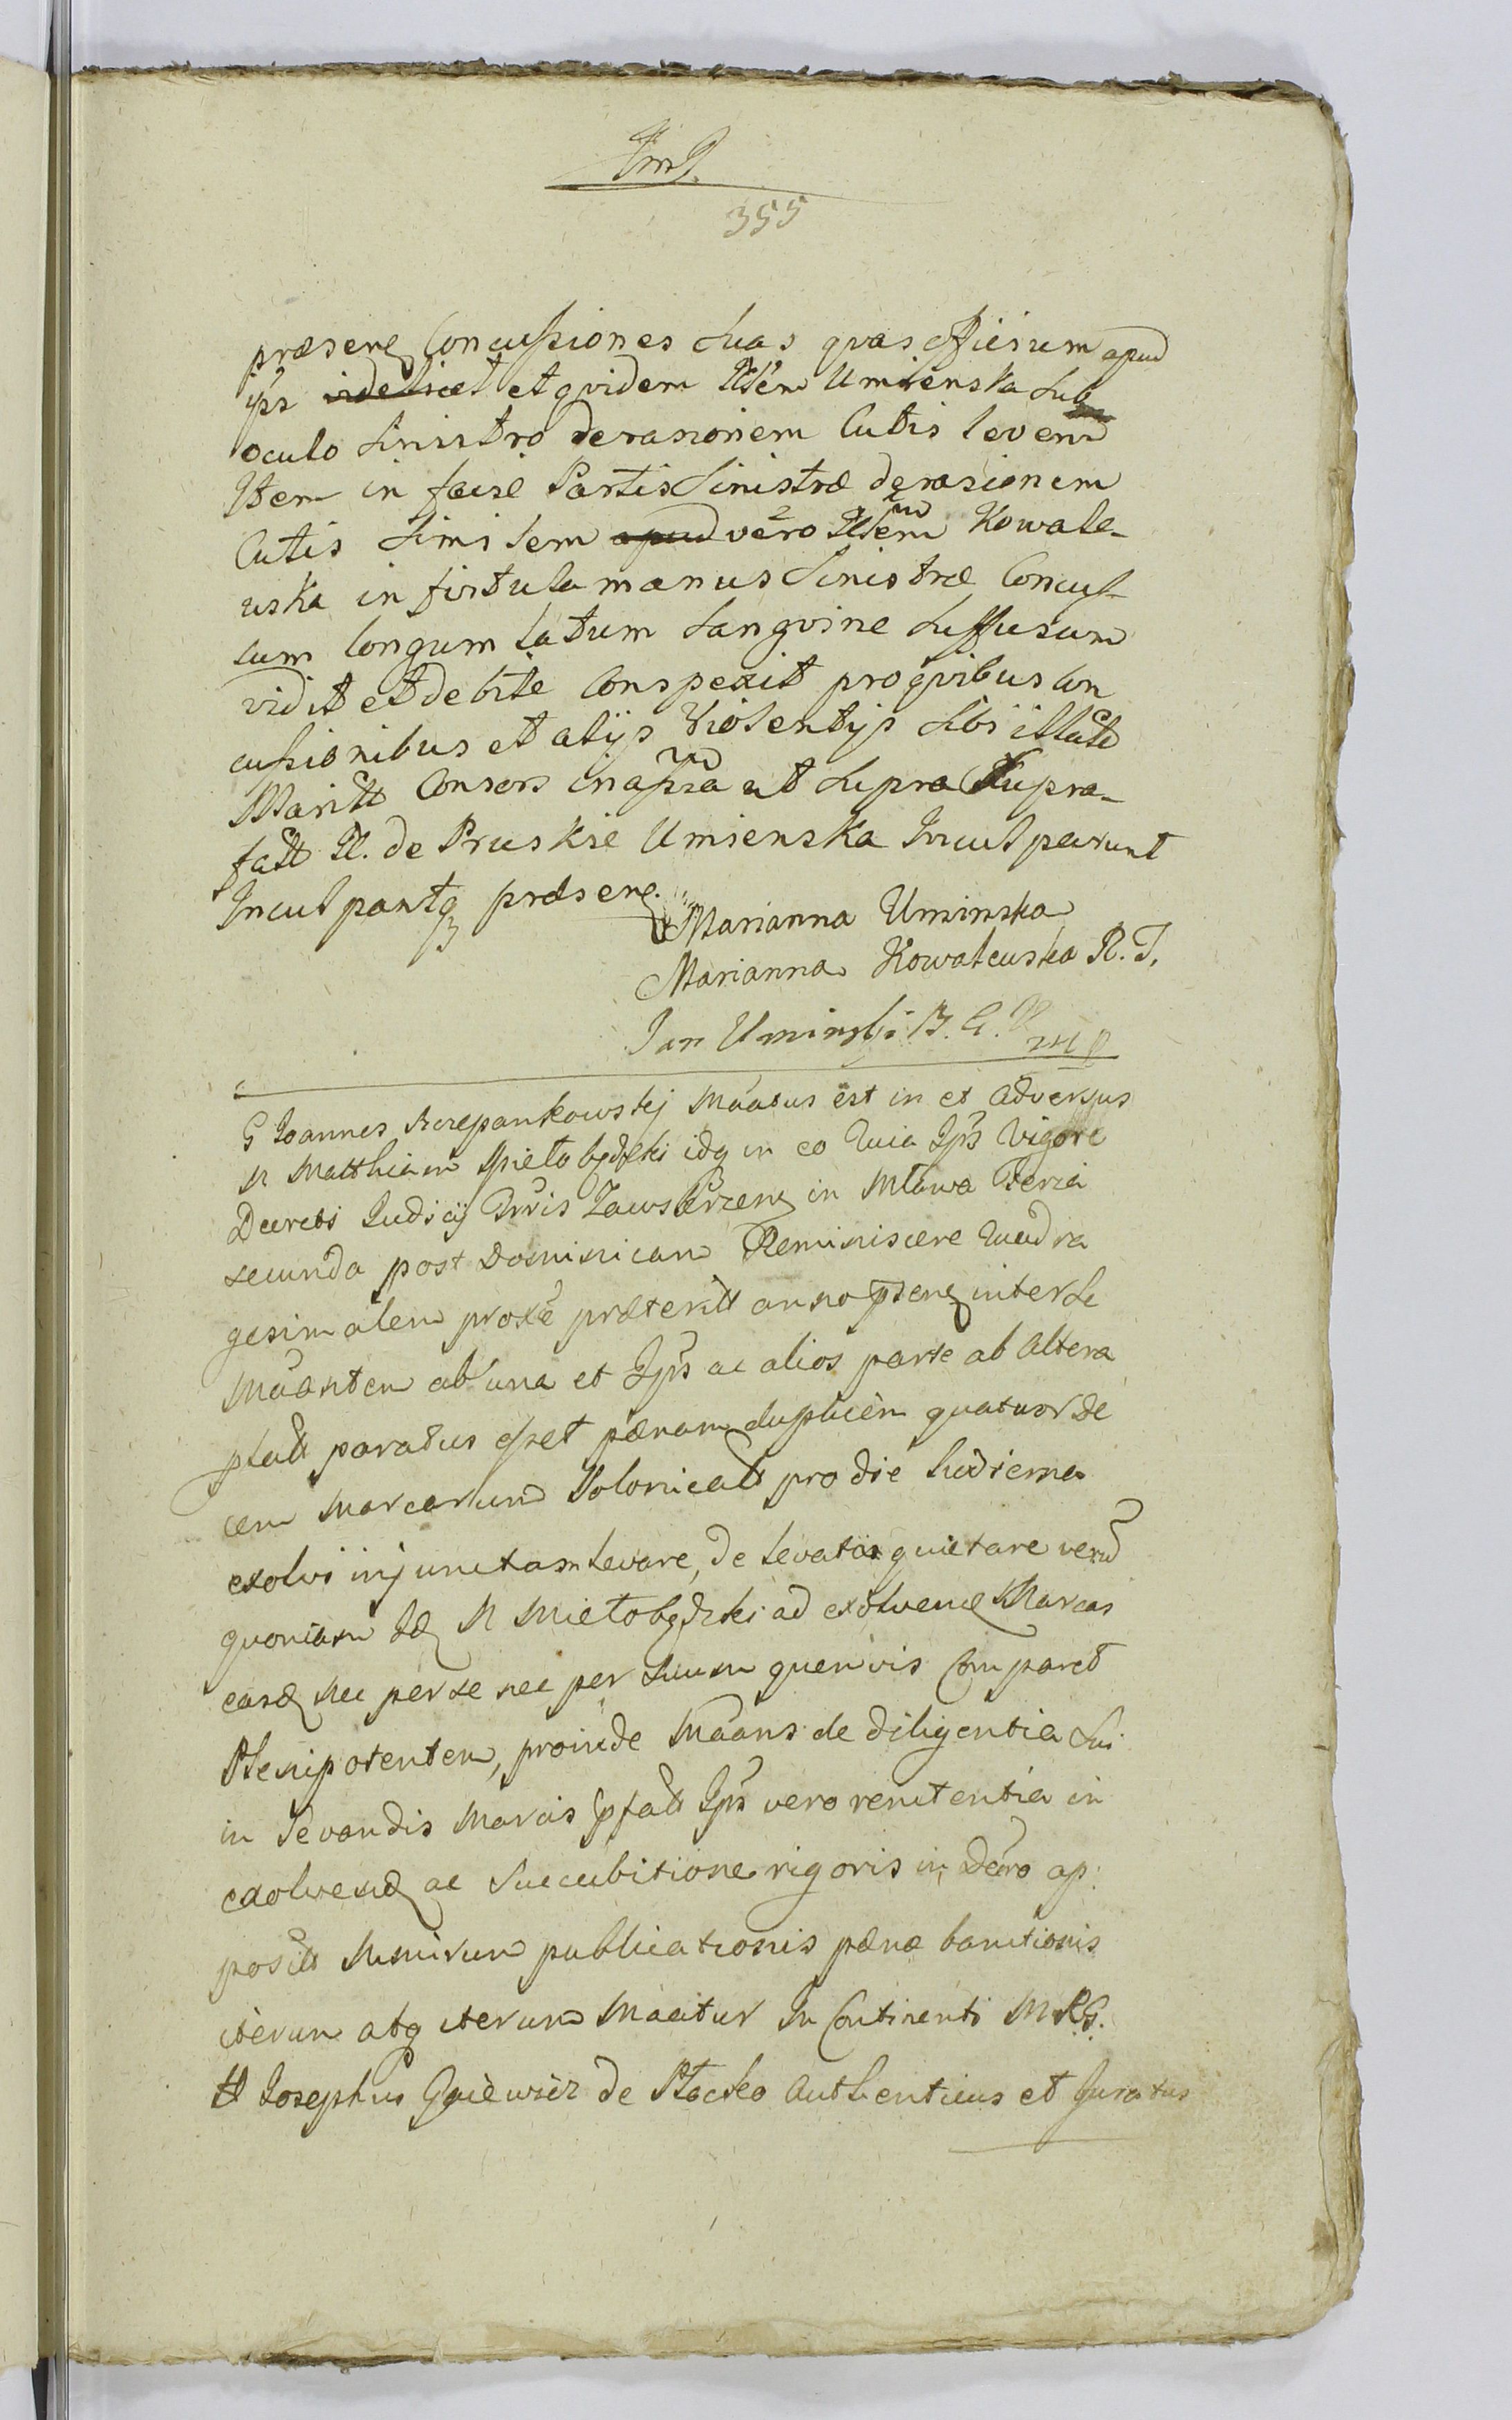 355
præsens Concussiones suas quas officium apud
ips videlicet et quidem Umienska sub
oculo sinistro derasionem Cutis levem
Item in facie Partis sinistræ derasionem
Cutis similem apud vero Kowale-
uska in fistula manus sinistræ Concus-
sum longum latum sanguine suffusum
vidit et debite Conspexit pro quibus con
cussionibus et alijs Violentijs sibi illatis
Maritt Consors ut supra supra-
fatt M. de Pruskie Umienska Inculparunt
Inculpantq præsen.
Marianna Uminska
Marianna Kowaleuska R. T.
Jan Uminski B. G. P mp
G Joannes Szczepankowskij Maatus est in et adversus
M Matthiam Miełobędzki idq in eo Quia Ips Vigore
Decreti Judicij Trris Zawskrzen in Mława Feria
secunda post Dominicam Reminiscere Quadra
gesimalem proxe præteritt anno psen inter se
Maantem ab una et Ips ac alios parte ab altera
pfatt paratus esset pænam duplicem quatuorde
cem Marcarum Polonicalt pro die hodierna
exolvi injunctam levare, de levatis quietare verum
quoniam Id M Miełobędzki ad exolvend Marcas
easd nec per se nec per suum quemvis Comparet
Plenipotentem, proinde Maans de diligentia sui
in levandis Marcis pfatt Ips vero renitentia in
exolvend ac succubitione rigoris in Decro ap
positt nimirum publicationis pænæ bannitionis
iterum atq iterum Maatur In Continenti M RG.
H Josephus de Płocko Authenticus et Juratus